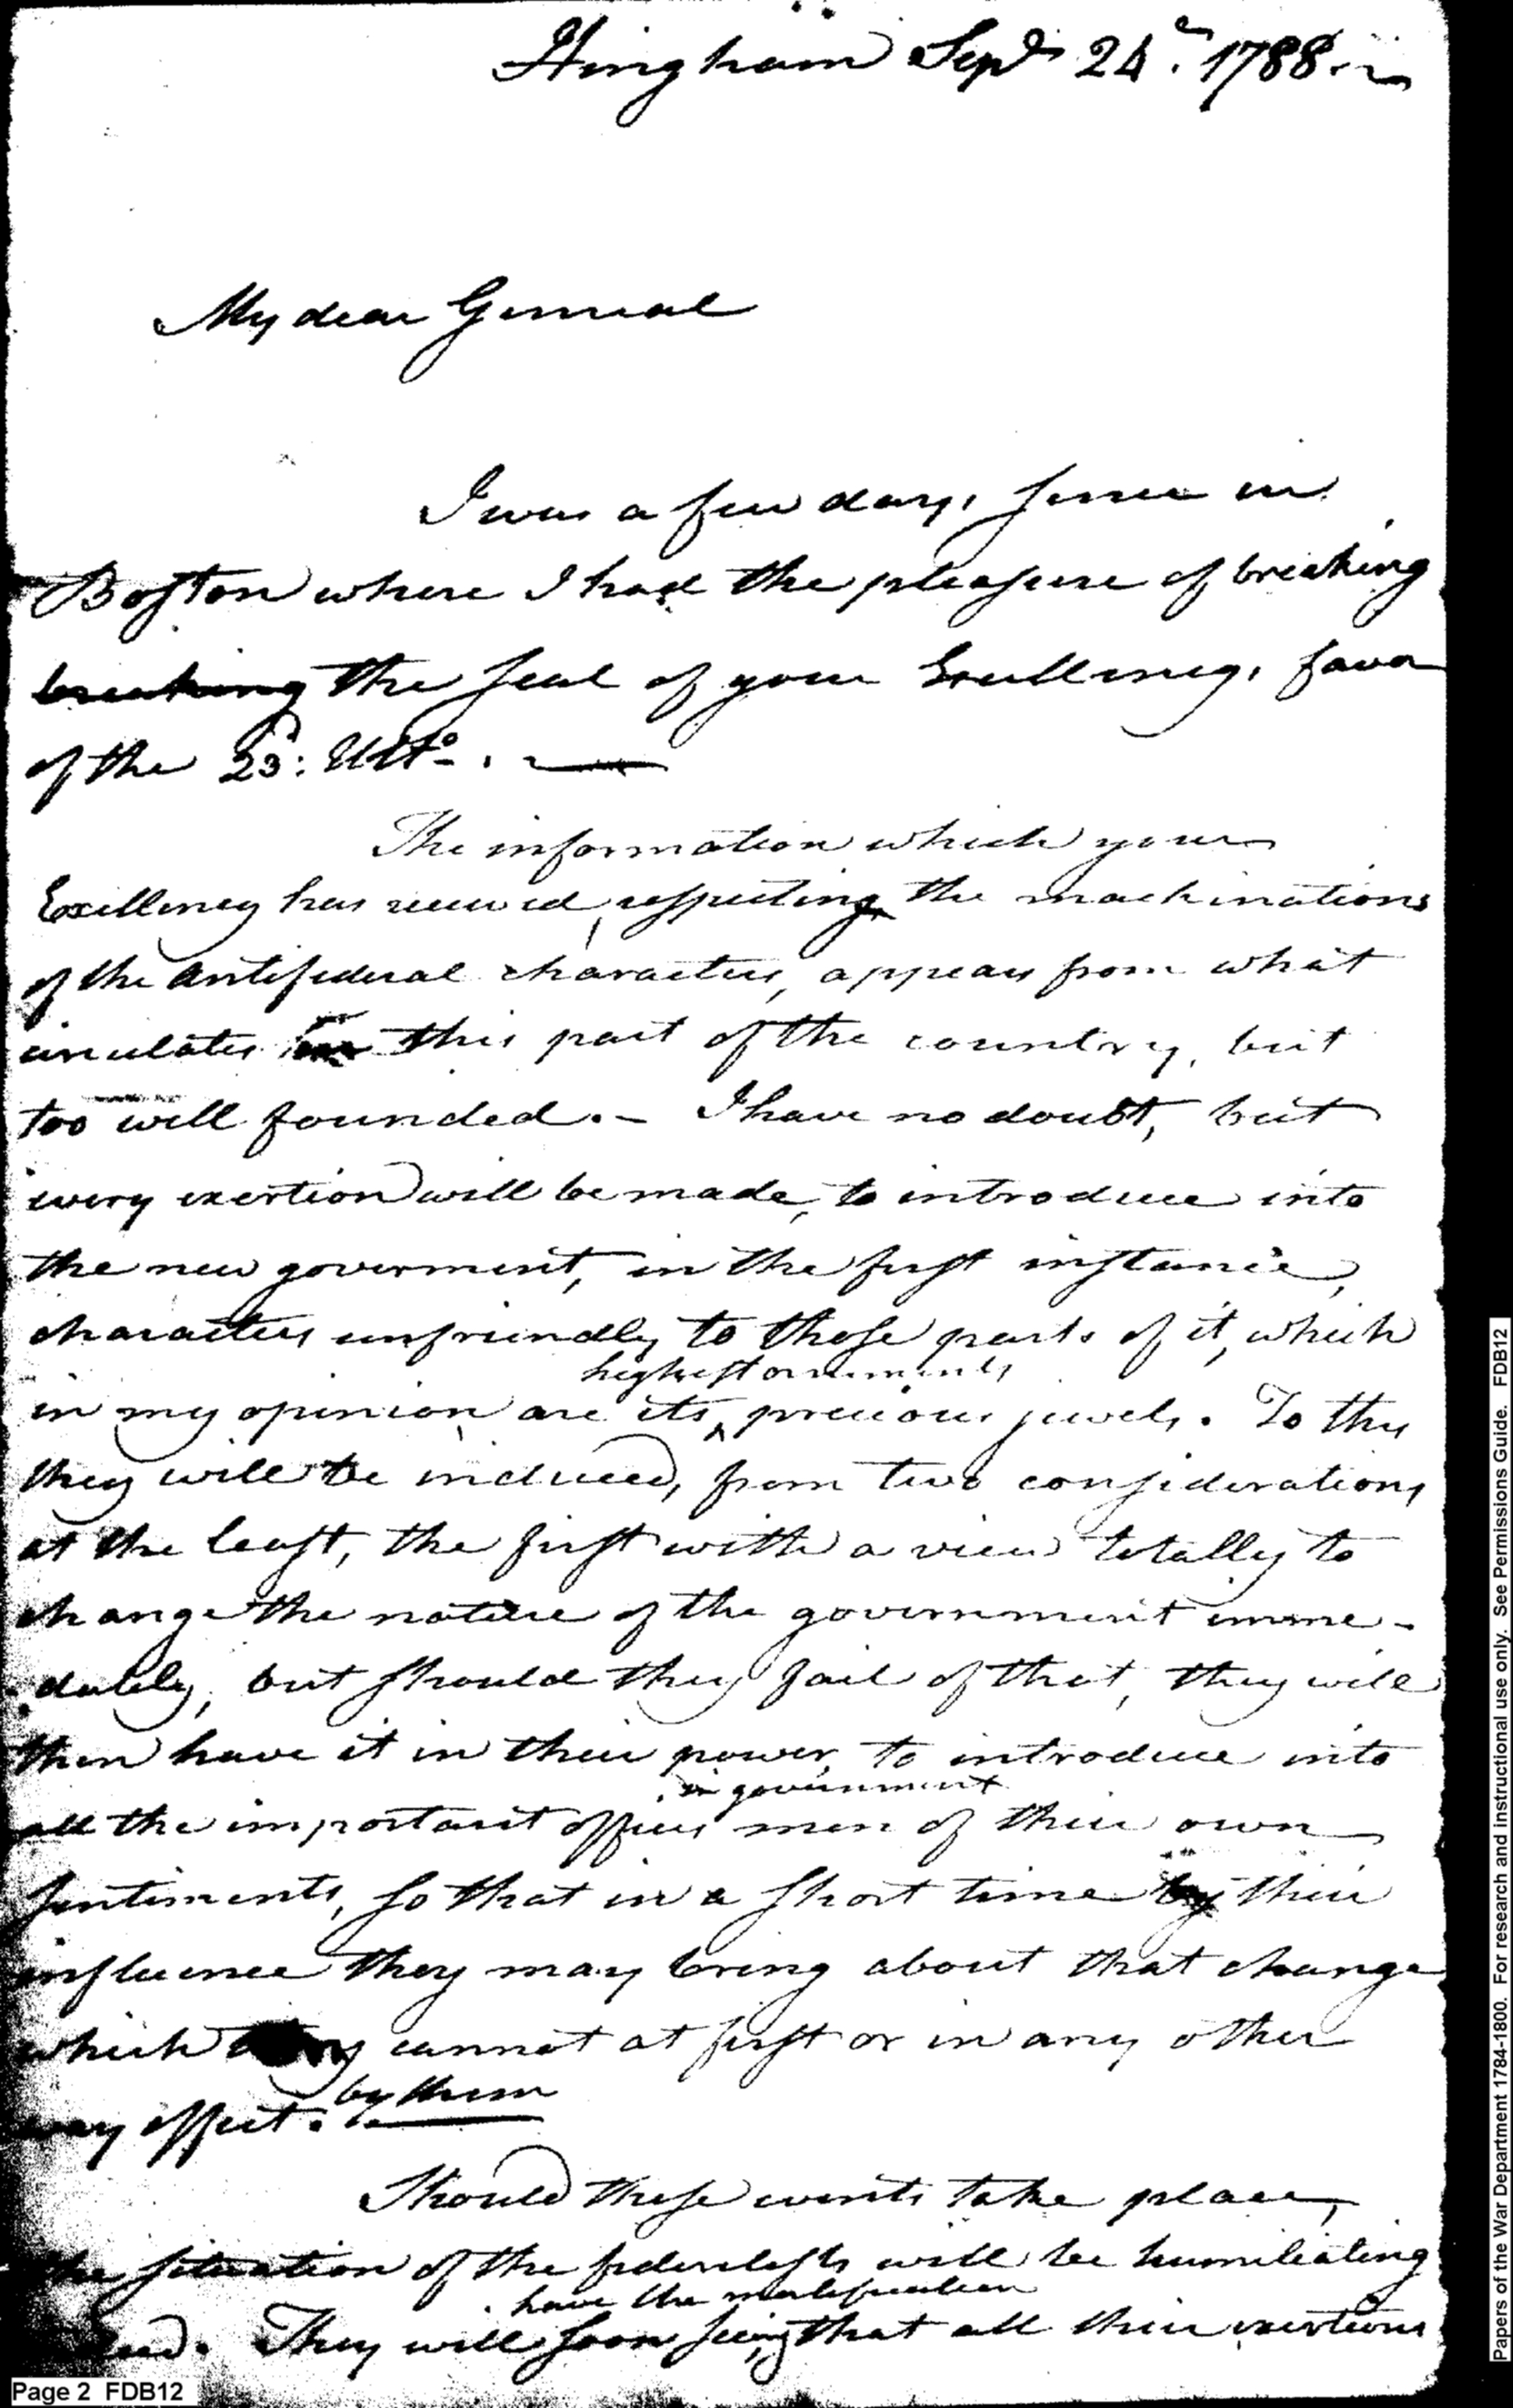 Hingham Sept 24th. 1788.
My dear General
I was a few days since in
Boston where I had the pleasure of breaking
breaking the seal of your Excellency's favor
of the 23d: Ulto.
The information which your
Excellency has received, respecting the machinations
of the antifederal characters, appears from what
circulates in this part of the country, but
too well founded. — I have no doubt, but
every exertion will be made, to introduce into
the new goverment, in the first instance,
characters unfriendly to those parts of it, which
highest ornaments
in my opinion are its precious jewels. To this
they will be induced, from two considerations
at the least, the first with a view totally to
change the nature of the government imme-
diately, but should they fail of that, they will
then have it in their power, to introduce into
in government
all the important offices men of their own
sentiments, so that in a short time by their
influence they may bring about that change
which they cannot at first or in any other
way effect. by them
Should these events take place,
the situation of the federalists will be humiliating
have the mortification
They will soon seeing that all their exertions
Page 2 FDB12
Papers of the War Department 1784-1800. For research and instructional use only. See Permissions Guide. FDB12